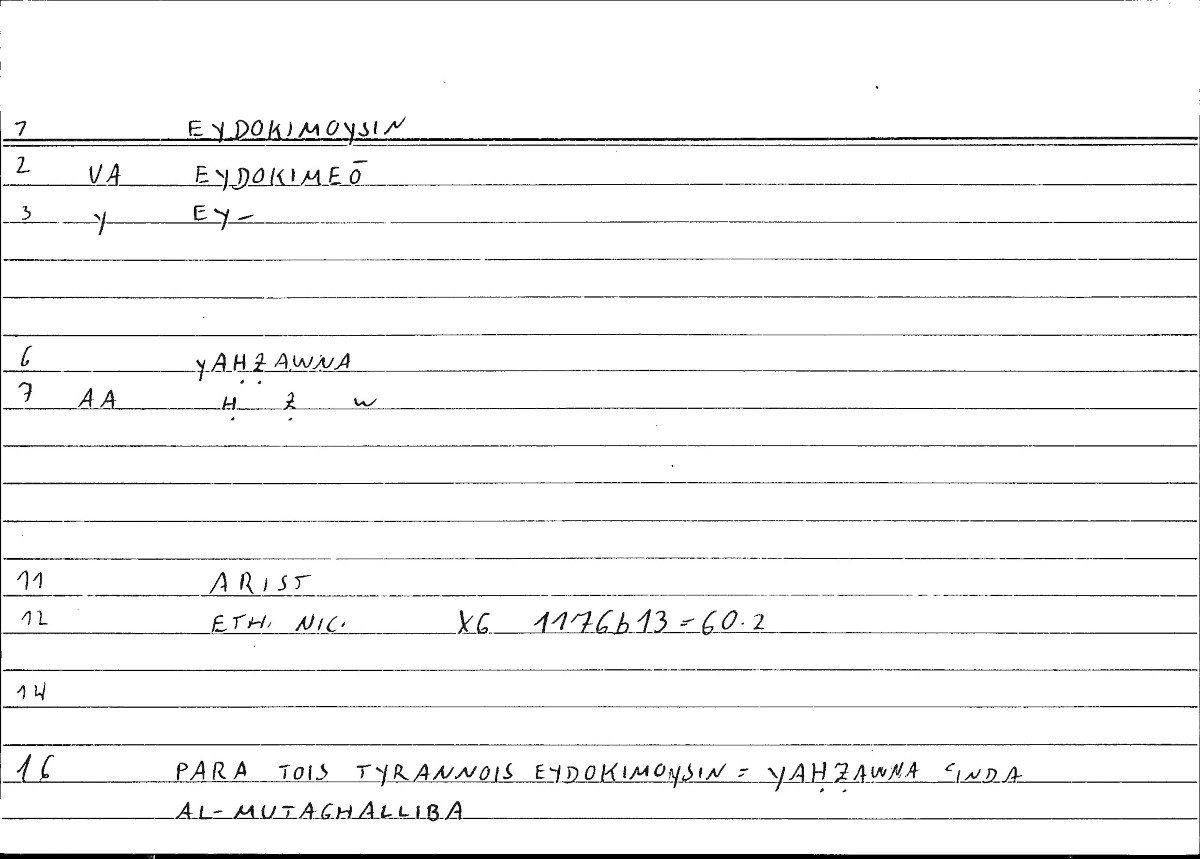 1 EYDOKIMOYSIN
2 VA EYDOKIMEŌ
3 Y EY-
6 YAḤẒAWNA
7 AA Ḥ Ẓ W
11 ARIST
12 ETH. NIC. X6 1176b13=60.2
14
16 PARA TOIS TYRANNOIS EYDOKIMOYSIN = YAḤẒAWNA ʿINDA
AL-MUTAGHALLIBA